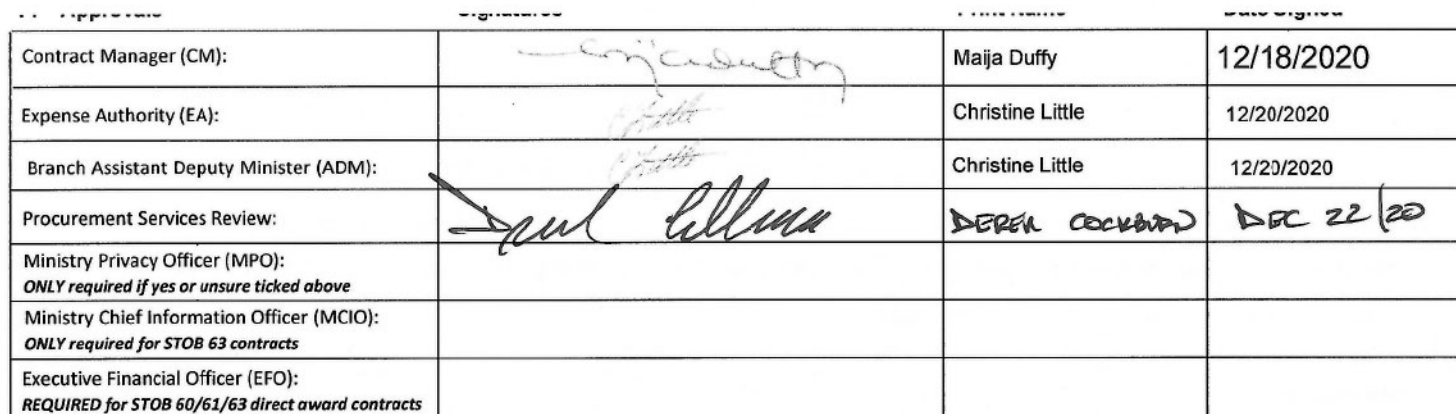 Approvals Signatures Print Name Date Signed
Contract Manager (CM): Maija Duffy 12/18/2020
Expense Authority (EA): Christine Little 12/20/2020
Branch Assistant Deputy Minister (ADM): Christine Little 12/20/2020
Procurement Services Review: DEREK COCKBURN DEC 22/20
Ministry Privacy Officer (MPO):
ONLY required if yes or unsure ticked above
Ministry Chief Information Officer (MCIO):
ONLY required for STOB 63 contracts
Executive Financial Officer (EFO):
REQUIRED for STOB 60/61/63 direct award contracts